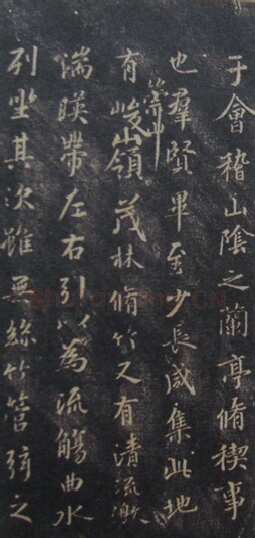 于會稽山陰之蘭亭脩稧事
也羣賢畢至少長咸集此地
有崇山峻嶺茂林脩竹又有清流激
湍暎帶左右引以為流觴曲水
列坐其次雖無絲竹管弦之